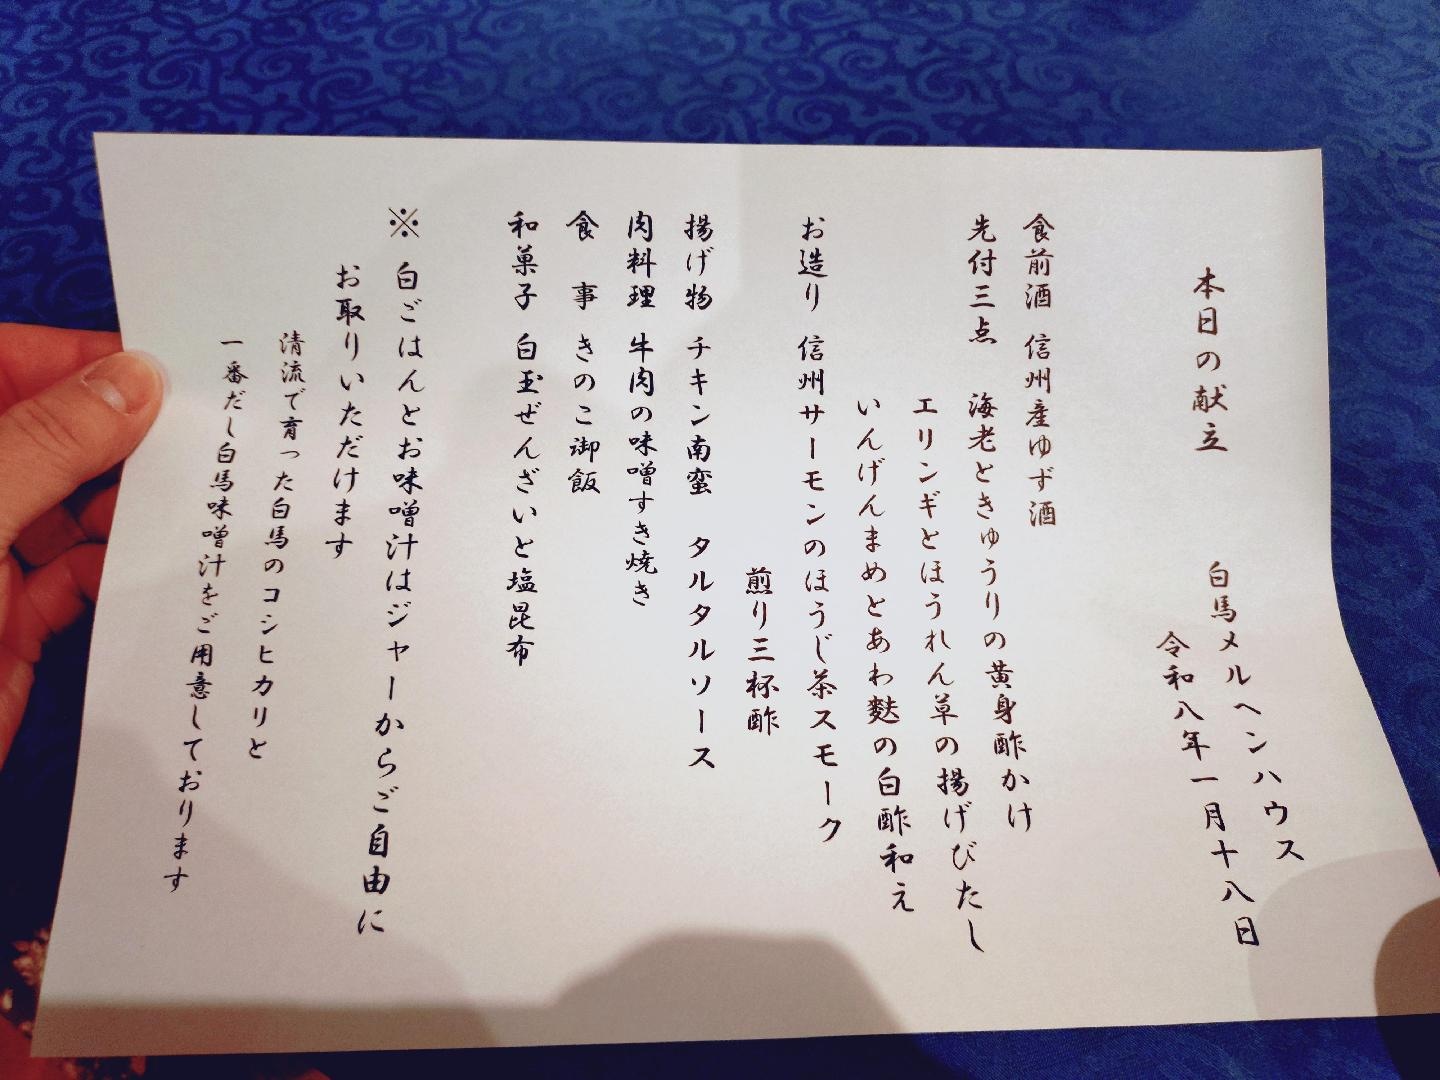 本日の献立
白馬メルヘンハウス
令和八年一月十八日
食前酒 信州産ゆず酒
先付三点 海老ときゅうりの黄身酢かけ
エリンギとほうれん草の揚げびたし
いんげんまめとあわ麩の白酢和え
お造り 信州サーモンのほうじ茶スモーク
煎り三杯酢
揚げ物 チキン南蛮 タルタルソース
肉料理 牛肉の味噌すき焼き
食 事 きのこ御飯
和菓子 白玉ぜんざいと塩昆布
※ 白ごはんとお味噌汁はジャーからご自由に
お取りいただけます
清流で育った白馬のコシヒカリと
一番だし白馬味噌汁をご用意しております